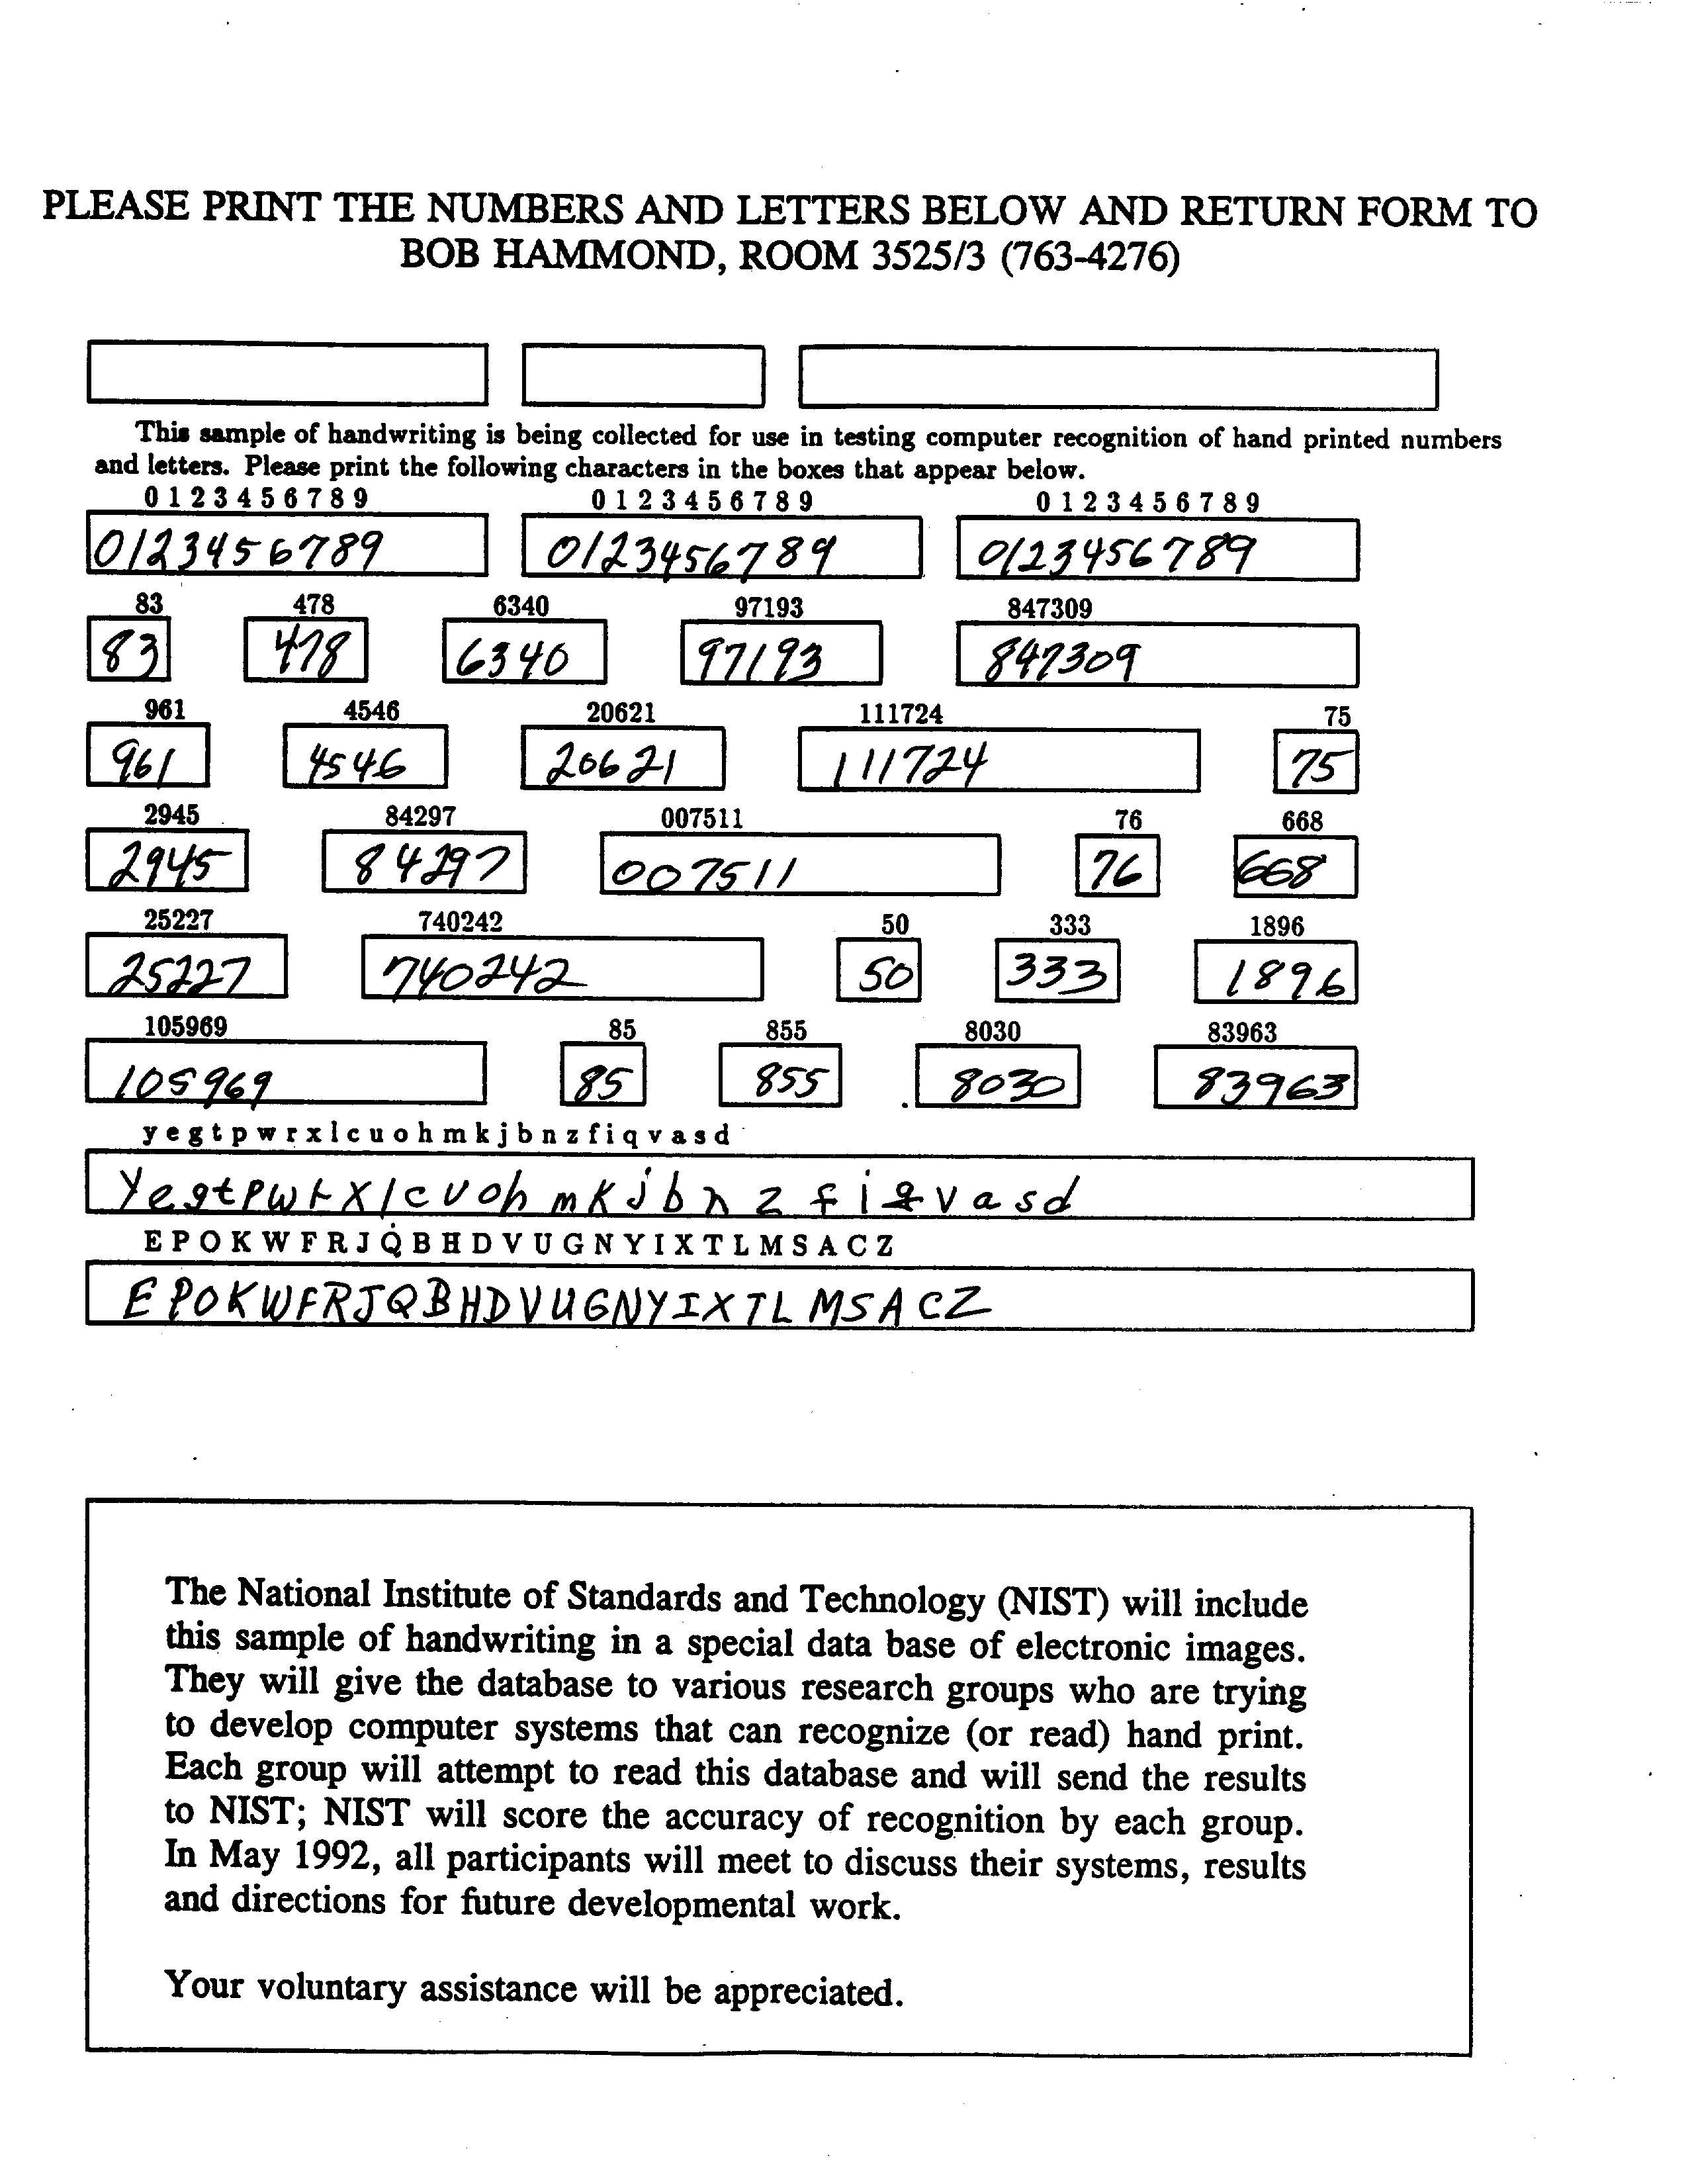 PLEASE PRINT THE NUMBERS AND LETTERS BELOW AND RETURN FORM TO
BOB HAMMOND, ROOM 3525/3 (763-4276)
This sample of handwriting is being collected for use in testing computer recognition of hand printed numbers
and letters. Please print the following characters in the boxes that appear below.
0 1 2 3 4 5 6 7 8 9 0 1 2 3 4 5 6 7 8 9 0 1 2 3 4 5 6 7 8 9
0123456789 0123456789 0123456789
83 478 6340 97193 847309
83 478 6340 97193 847309
961 4546 20621 111724 75
961 4546 20621 111724 75
2945 84297 007511 76 668
2945 84297 007511 76 668
25227 740242 50 333 1896
25227 740242 50 333 1896
105969 85 855 8030 83963
105969 85 855 8030 83963
y e g t p w r x l c u o h m k j b n z f i q v a s d
y e g t p w r x l c u o h m k j b n z f i q v a s d
E P O K W F R J Q B H D V U G N Y I X T L M S A C Z
E P O K W F R J Q B H D V U G N Y I X T L M S A C Z
The National Institute of Standards and Technology (NIST) will include
this sample of handwriting in a special data base of electronic images.
They will give the database to various research groups who are trying
to develop computer systems that can recognize (or read) hand print.
Each group will attempt to read this database and will send the results
to NIST; NIST will score the accuracy of recognition by each group.
In May 1992, all participants will meet to discuss their systems, results
and directions for future developmental work.
Your voluntary assistance will be appreciated.